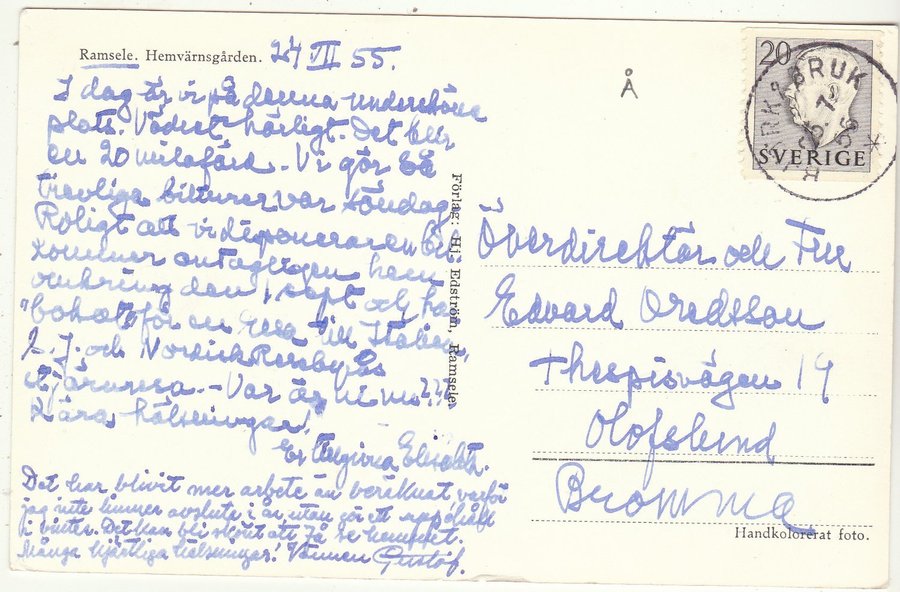 Ramsele. Hemvärnsgården. 24 VII 55.
I dag är vi på denna undersköna
plats. Vädret härligt. Det blir
en 20 milafärd. - Vi gör så
trevliga bilturer var söndag.
Roligt att vi
kommer antagligen hem
omkring den 1 sept och har
"bokat" för en resa till Italien,
J. och Nordisk Resebyrås
stjärnresa. - Var är ni nu???
Kära hälsningar!
Er tillgivna Elisabta.
Det har blivit mer arbete än beräknat varför
jag inte hinner avsluta i år utan gör ett uppehåll
i vinter. Det kan bli skönt att få se hemmet.
Många hjärtliga hälsningar! Vännen Gustaf.
Förlag: Hj. Edström, Ramsele.
Å
20
SVERIGE
BRUK
Överdirektör och Fru
Edvard Oredsson
Thespisvägen 19
Olofslund
Bromma
Handkolorerat foto.